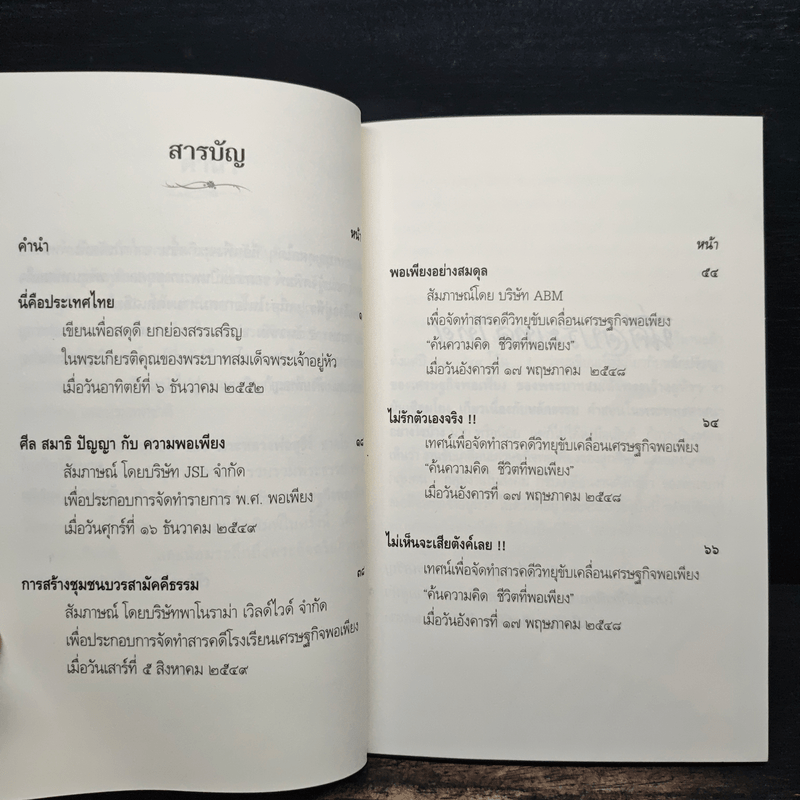 สารบัญ
หน้า
คำนำ
นี่คือประเทศไทย ๑
เขียนเพื่อสดุดี ยกย่องสรรเสริญ
ในพระเกียรติคุณของพระบาทสมเด็จพระเจ้าอยู่หัว
เมื่อวันอาทิตย์ที่ ๖ ธันวาคม ๒๕๕๒
ศีล สมาธิ ปัญญา กับ ความพอเพียง ๑๘
สัมภาษณ์ โดยบริษัท JSL จำกัด
เพื่อประกอบการจัดทำรายการ พ.ศ. พอเพียง
เมื่อวันศุกร์ที่ ๑๖ ธันวาคม ๒๕๔๙
การสร้างชุมชนบวรสามัคคีธรรม ๓๘
สัมภาษณ์ โดยบริษัทพาโนราม่า เวิลด์ไวด์ จำกัด
เพื่อประกอบการจัดทำสารคดีโรงเรียนเศรษฐกิจพอเพียง
เมื่อวันเสาร์ที่ ๕ สิงหาคม ๒๕๔๙
หน้า
พอเพียงอย่างสมดุล ๕๔
สัมภาษณ์โดย บริษัท ABM
เพื่อจัดทำสารคดีวิทยุขับเคลื่อนเศรษฐกิจพอเพียง
“ค้นความคิด ชีวิตที่พอเพียง”
เมื่อวันอังคารที่ ๑๗ พฤษภาคม ๒๕๔๘
ไม่รักตัวเองจริง !! ๖๔
เทศน์เพื่อจัดทำสารคดีวิทยุขับเคลื่อนเศรษฐกิจพอเพียง
“ค้นความคิด ชีวิตที่พอเพียง”
เมื่อวันอังคารที่ ๑๗ พฤษภาคม ๒๕๔๘
ไม่เห็นจะเสียตังค์เลย !! ๖๖
เทศน์เพื่อจัดทำสารคดีวิทยุขับเคลื่อนเศรษฐกิจพอเพียง
“ค้นความคิด ชีวิตที่พอเพียง”
เมื่อวันอังคารที่ ๑๗ พฤษภาคม ๒๕๔๘